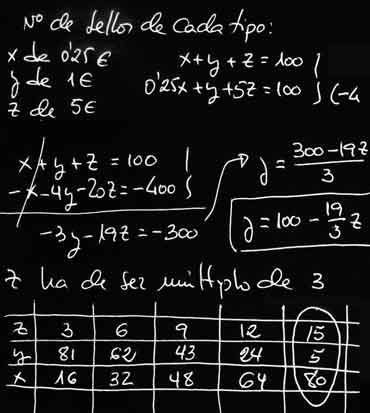 Nº de sellos de cada tipo:
x de 0'25€
y de 1€
z de 5€
x+y+z=100
0'25x+y+5z=100 } (-4
x+y+z=100
-x-4y-20z=-400
-3y-19z=-300
y = 300-19z / 3
y = 100 - 19/3 z
z ha de ser múltiplo de 3
z 3 6 9 12 15
y 81 62 43 24 5
x 16 32 48 64 80